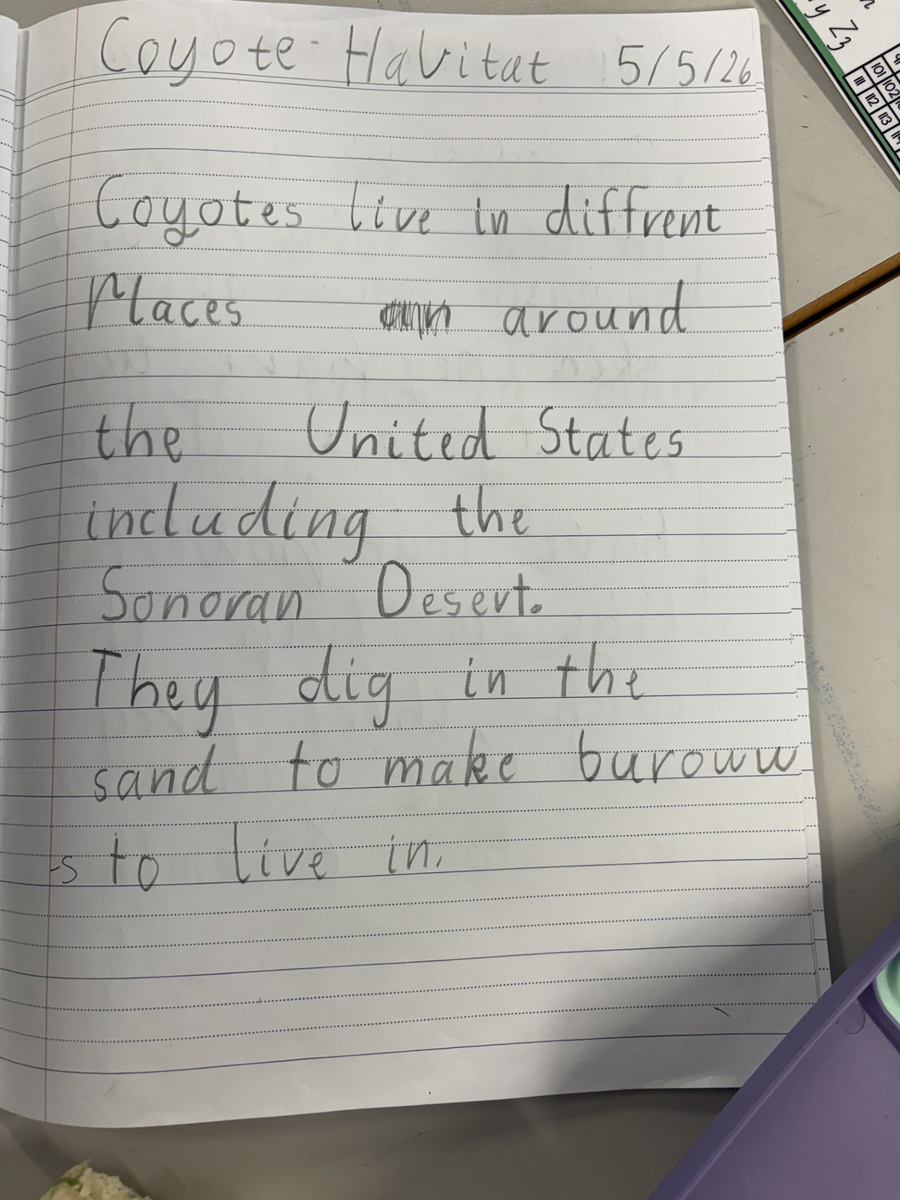 Coyote Havitat 5/5/26
Coyotes live in diffrent
Places around
the United States
including the
Sonoran Desert.
They dig in the
sand to make buroww
-s to live in.
y Z3
101 102
111 112 113